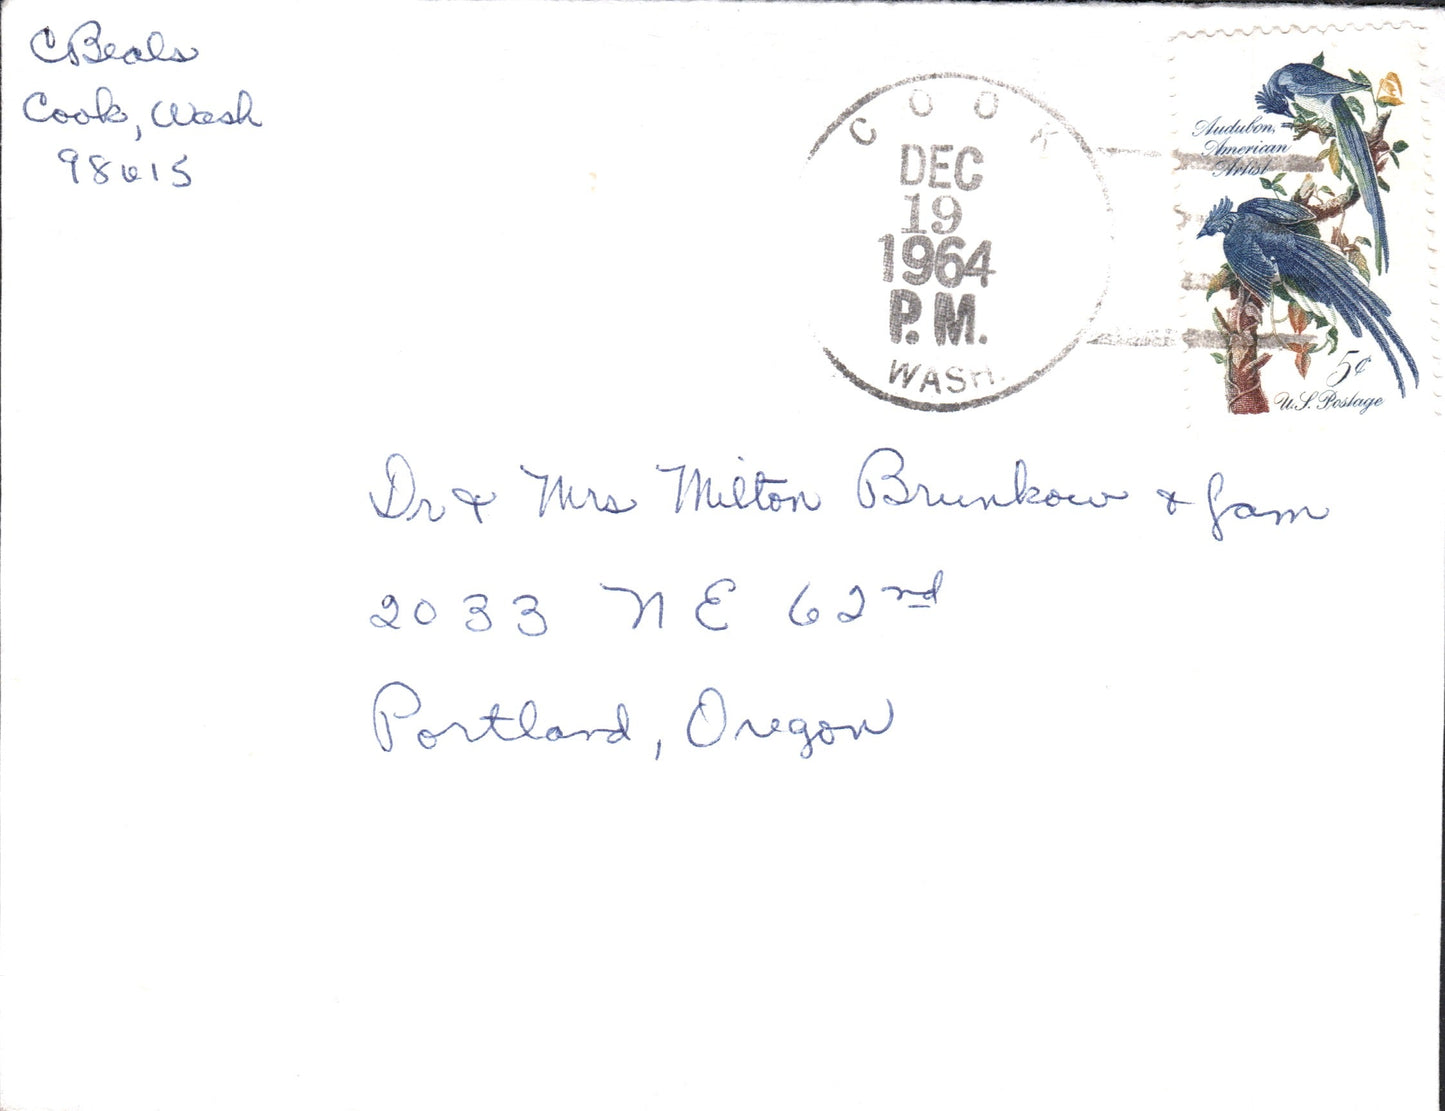 C Beals
Cook, Wash
98615
COOK
DEC
19
1964
P.M.
WASH.
Audubon,
American
Artist
5¢
U.S. Postage
Dr & Mrs Milton Brunkow & fam
2033 NE 62nd
Portland, Oregon